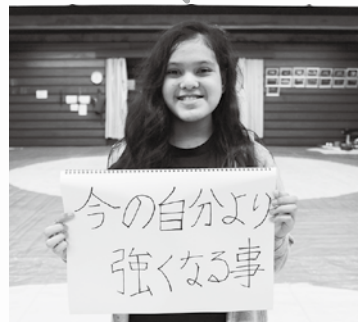 今の自分より
強くなる事